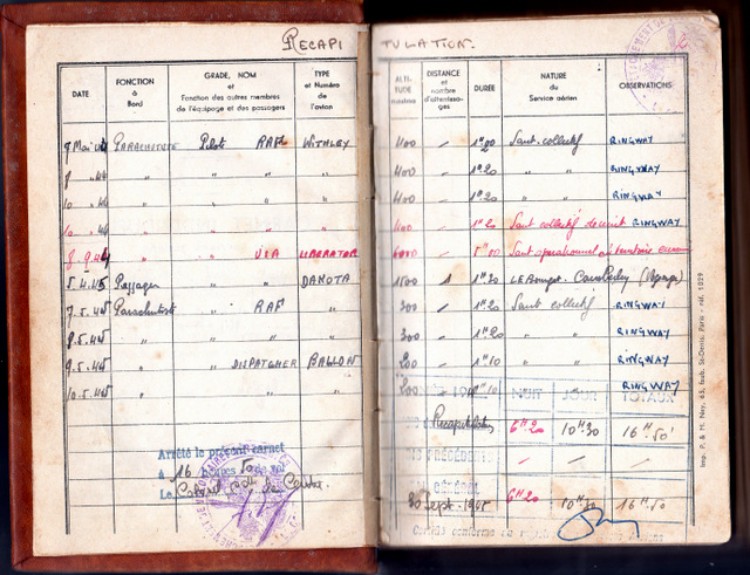 RECAPITULATION.
DATE FONCTION à Bord GRADE, NOM et Fonction des autres membres de l'équipage et des passagers TYPE et Numéro de l'avion ALTITUDE maxima DISTANCE et nombre d'atterrissages DURÉE NATURE du Service aérien OBSERVATIONS
9 Mai 44 PARACHUTISTE Pilote RAF WITHLEY 400 - 1H00 Saut collectif RINGWAY
8 " 44 " " " " 400 - 1H20 " " RINGWAY
10 " 44 " " " " 400 - 1H20 " " RINGWAY
10 " 44 " " " " 400 - 1H20 Saut collectif de nuit RINGWAY
8 9 44 " " USA LIBERATOR 5H00 Saut opérationnel
5.4.45 Passager " " DAKOTA 1500 1 1H30 LE Bourget - (Voyage)
7.5.45 Parachutiste " RAF " 300 - 1H20 Saut collectif RINGWAY
8.5.45 " " " " 300 - 1H20 " " RINGWAY
9.5.45 " " DISPATCHER BALLON 200 - 1H10 " " RINGWAY
10.5.45 " " " " 200 1H10 " " RINGWAY
NUIT JOUR TOTAUX
Récapitulation 6H20 10H30 16H50'
PRÉCÉDENTS - - -
GÉNÉRAL 6H20 10H30 16H50
30 Sept. 1945
Arrêté le présent carnet
à 16 heures 50 de vol
Le
Certifié conforme
Imp. P. & M. Ney, 63, faub. St-Denis, Paris - réf. 1029